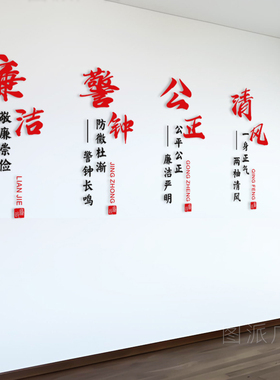 廉洁
敬廉崇俭
LIAN JIE
警钟
防微杜渐
——警钟长鸣
JING ZHONG
公正
公平公正
——廉洁严明
GONG ZHENG
清风
一身正气
——两袖清风
QING FENG
图派